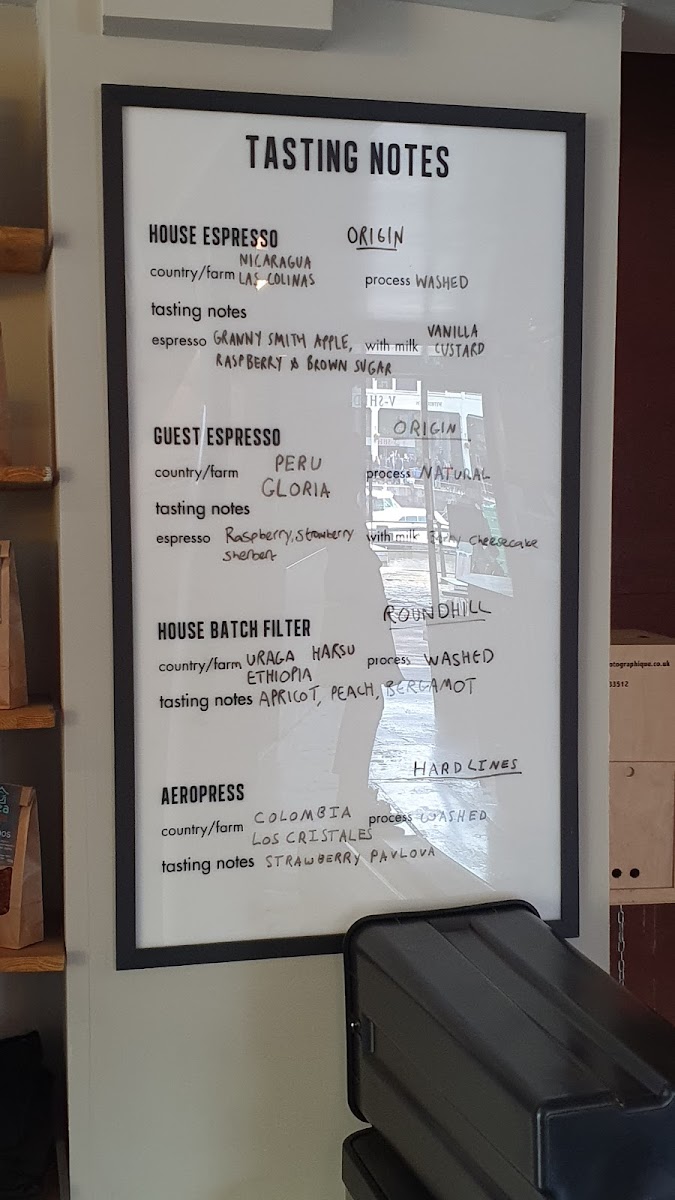 TASTING NOTES
HOUSE ESPRESSO ORIGIN
country/farm NICARAGUA LAS COLINAS process WASHED
tasting notes
espresso GRANNY SMITH APPLE, with milk VANILLA CUSTARD
RASPBERRY & BROWN SUGAR
GUEST ESPRESSO ORIGIN
country/farm PERU process NATURAL
GLORIA
tasting notes
espresso Raspberry, strawberry with milk cheesecake
sherbert
HOUSE BATCH FILTER ROUNDHILL
country/farm URAGA HARSU process WASHED
ETHIOPIA
tasting notes APRICOT, PEACH, BERGAMOT
HARDLINES
AEROPRESS
country/farm COLOMBIA process WASHED
LOS CRISTALES
tasting notes STRAWBERRY PAVLOVA
otographique.co.uk
33512